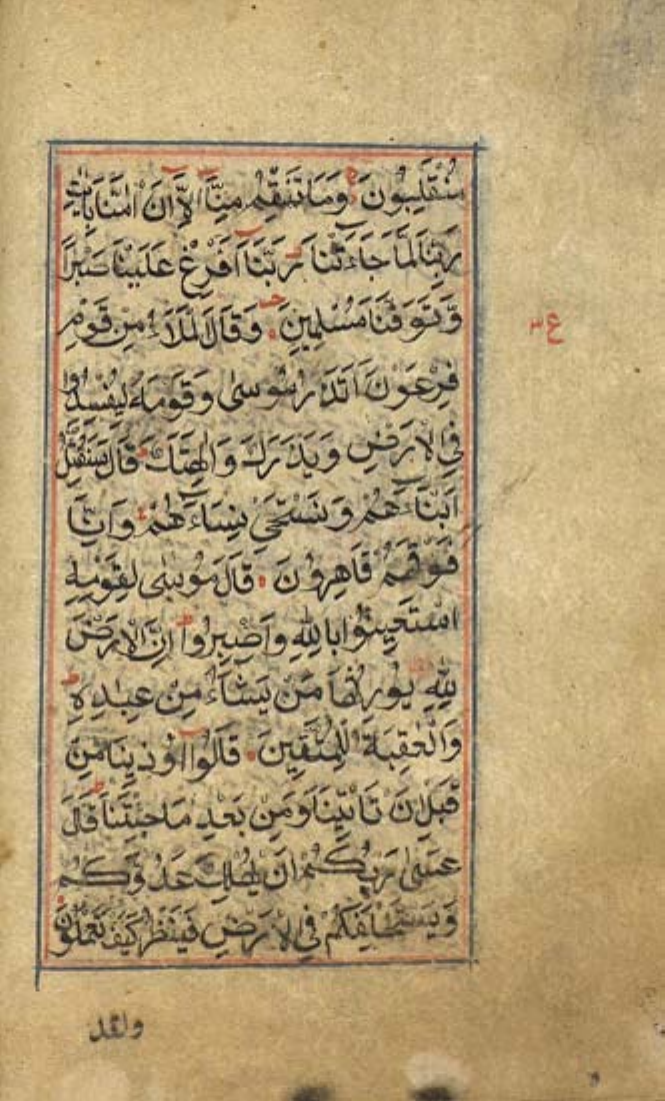 مُنْقَلِبُونَ وَمَا تَنْقِمُ مِنَّا اِلَّا اَنْ اٰمَنَّا بِاٰيٰتِ
رَبِّنَا لَمَّا جَاءَتْنَا رَبَّنَا اَفْرِغْ عَلَيْنَا صَبْرًا
وَتَوَفَّنَا مُسْلِمِينَ وَقَالَ الْمَلَاُ مِنْ قَوْمِ
فِرْعَوْنَ اَتَذَرُ مُوسٰى وَقَوْمَهُ لِيُفْسِدُوا
فِي الْاَرْضِ وَيَذَرَكَ وَاٰلِهَتَكَ قَالَ سَنُقَتِّلُ
اَبْنَاءَهُمْ وَنَسْتَحْيِ نِسَاءَهُمْ وَاِنَّا
فَوْقَهُمْ قَاهِرُونَ قَالَ مُوسٰى لِقَوْمِهِ
اسْتَعِينُوا بِاللّٰهِ وَاصْبِرُوا اِنَّ الْاَرْضَ
لِلّٰهِ يُورِثُهَا مَنْ يَشَاءُ مِنْ عِبَادِهِ
وَالْعٰقِبَةُ لِلْمُتَّقِينَ قَالُوا اُوذِينَا مِنْ
قَبْلِ اَنْ تَأْتِيَنَا وَمِنْ بَعْدِ مَا جِئْتَنَا قَالَ
عَسٰى رَبُّكُمْ اَنْ يُهْلِكَ عَدُوَّكُمْ
وَيَسْتَخْلِفَكُمْ فِي الْاَرْضِ فَيَنْظُرَ كَيْفَ تَعْمَلُونَ
ولقد
ع